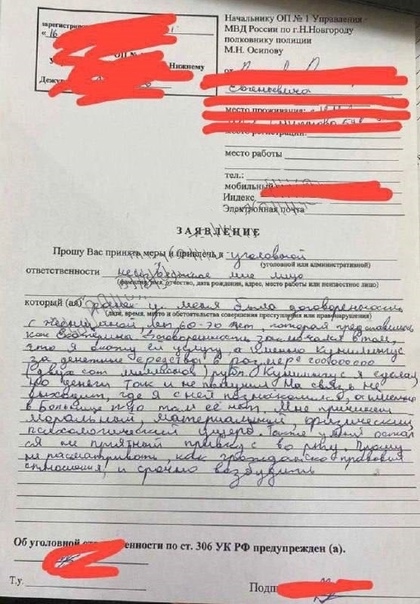 зарегистри
« 16
ОП № 1
Нижнему
Дежу
Начальнику ОП № 1 Управления
МВД России по г.Н.Новгороду
полковнику полиции
М.Н. Осипову
от
место проживания:
место регистрации:
место работы
тел.:
мобильный
Индекс
Электронная почта
ЗАЯВЛЕНИЕ
Прошу Вас принять меры и привлечь к уголовной
(уголовной или административной)
ответственности неизвестное мне лицо
(фамилия, имя, отчество, дата рождения, адрес, место работы или неизвестное лицо)
который (ая) у меня была договоренность
(дата, время, место и обстоятельства совершения преступления или правонарушения)
с женщиной, лет 60-70 лет, который представилась
как Екатерина Договоренность заключался в том,
что я окажу ей услугу а именно Кунилингус
за денежные средства в размере 200 000 000
(двести сот миллионов) рубл. Кунилингус я сделал,
но деньги так и не получил На связь не
выходит, где я с ней познакомился, а именно
в больнице №40 там её нет. Мне причинен
моральный, материальный, физический
психологический ущерб также у меня остал
ся не приятный привкус во рту. Прошу
не рассматривать, как гражданско правовые
отношения, и срочно возбудить
Об уголовной ответственности по ст. 306 УК РФ предупрежден (а).
Т.у.
Подп